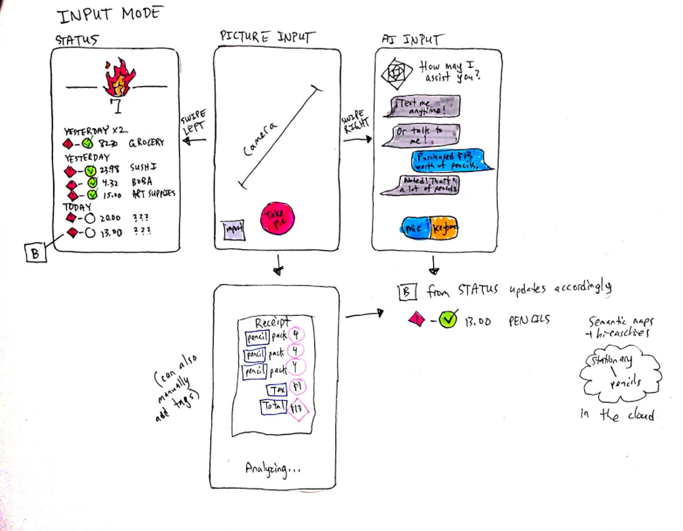 INPUT MODE
STATUS
7
YESTERDAY X2
82.30 GROCERY
YESTERDAY
23.98 SUSHI
4.32 BOBA
15.00 ART SUPPLIES
TODAY
20.00 ???
13.00 ???
B
SWIPE
LEFT
PICTURE INPUT
Camera
import
Take
pic
SWIPE
RIGHT
AI INPUT
How may I
assist you?
Text me
anytime!
Or talk to
me!
Purchased $13
worth of pencils.
Noted! That's
a lot of pencils
mic
keyboard
(can also
manually
add tags)
Receipt
pencil pack 4
pencil pack 4
pencil pack 4
Tax $1
Total $13
Analyzing...
B from STATUS updates accordingly
13.00 PENCILS
Semantic maps
+ hierarchies
Stationary
pencils
in the cloud